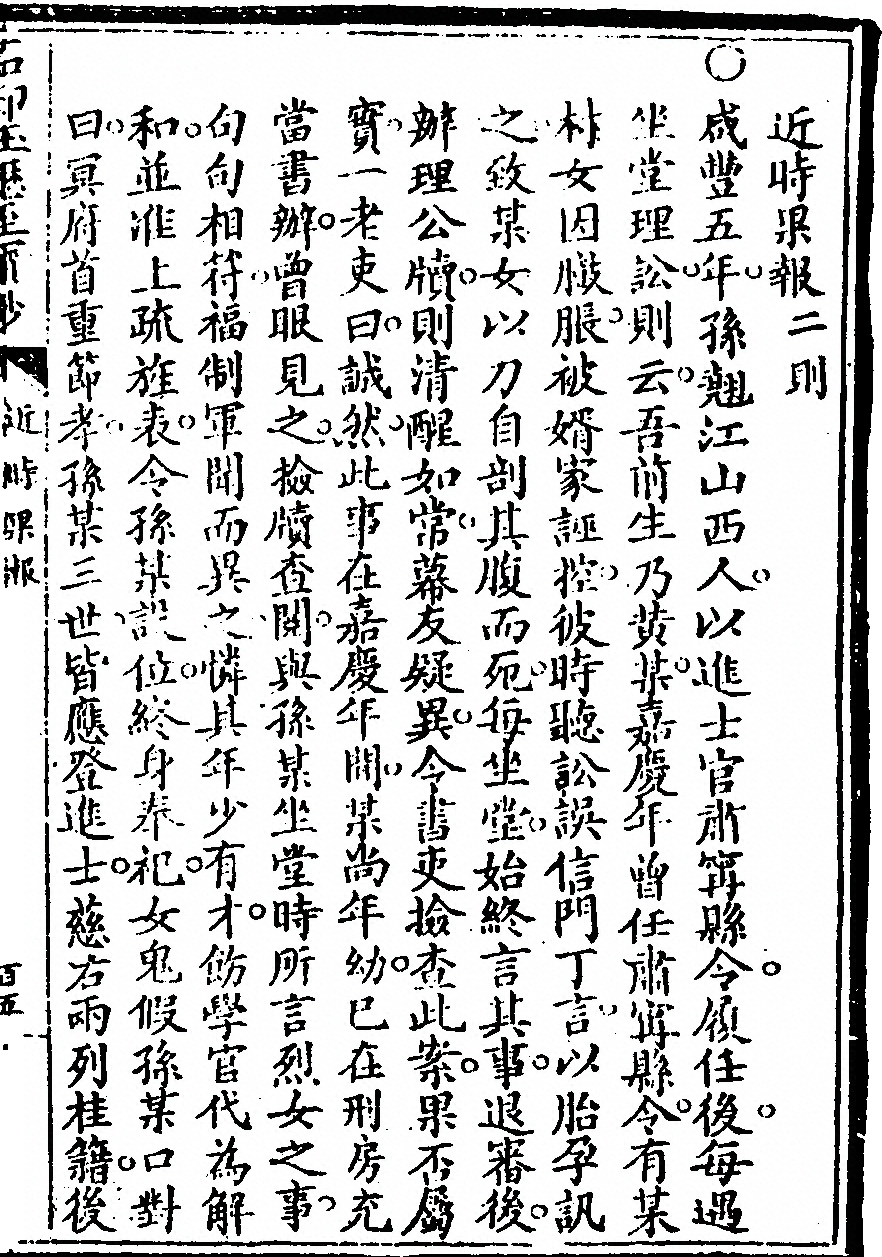 近時果報二則
〇咸豐五年。孫翹江山西人。以進士官肅甯縣令。履任後。每遇
坐堂理訟。則云。吾前生乃黃某。嘉慶年曾任肅甯縣令。有某
村女因臌脹。被婿家誣控。彼時聽訟誤信門丁言。以胎孕訊
之。致某女以刀自剖其腹而死。每坐堂。始終言其事。退審後。
辦理公牘。則清醒如常。幕友疑異。令書吏檢查此案。果否屬
實。一老吏曰。誠然。此事在嘉慶年間。某尚年幼。已在刑房充
當書辦。曾眼見之。檢牘查閱。與孫某坐堂時所言烈女之事。
句句相符。福制軍聞而異之。憐其年少有才。飭學官代為解
和。並准上疏旌表。令孫某設位。終身奉祀。女鬼假孫某口對
曰。冥府首重節孝。孫某三世。皆應登進士。慈右兩列桂籍。後
近時果報
百五